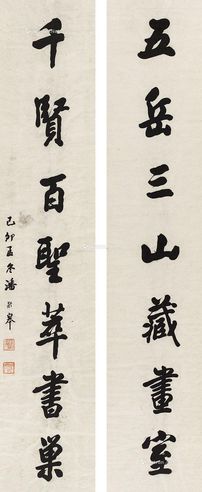 五岳三山藏畫室
千賢百聖萃書巢
己卯孟冬潘齡皋